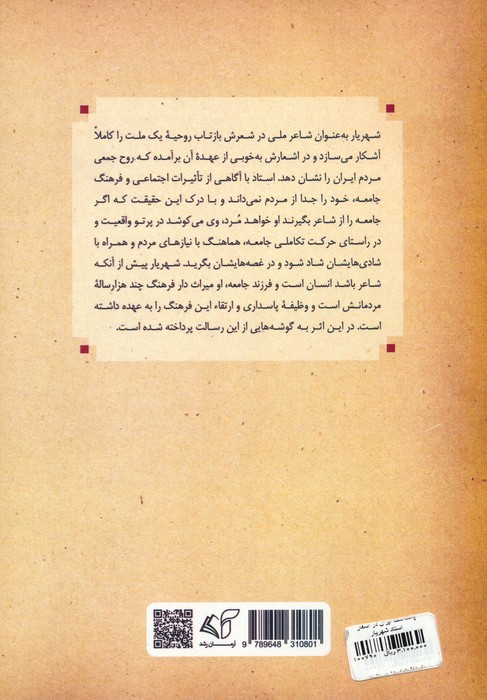 شهریار به‌عنوان شاعر ملی در شعرش بازتاب روحیهٔ یک ملت را کاملاً
آشکار می‌سازد و در اشعارش به‌خوبی از عهدهٔ آن برآمده که روح جمعی
مردم ایران را نشان دهد. استاد با آگاهی از تأثیرات اجتماعی و فرهنگ
جامعه، خود را جدا از مردم نمی‌داند و با درک این حقیقت که اگر
جامعه را از شاعر بگیرند او خواهد مُرد، وی می‌کوشد در پرتو واقعیت و
در راستای حرکت تکاملی جامعه، هماهنگ با نیازهای مردم و همراه با
شادی‌هایشان شاد شود و در غصه‌هایشان بگرید. شهریار پیش از آنکه
شاعر باشد انسان است و فرزند جامعه، او میراث دار فرهنگ چند هزارسالهٔ
مردمانش است و وظیفهٔ پاسداری و ارتقاء این فرهنگ را به عهده داشته
است. در این اثر به گوشه‌هایی از این رسالت پرداخته شده است.
آرمان رشد
9 789648 310801
استاد شهریار
۳,۱۰۰,۰۰۰ ریال